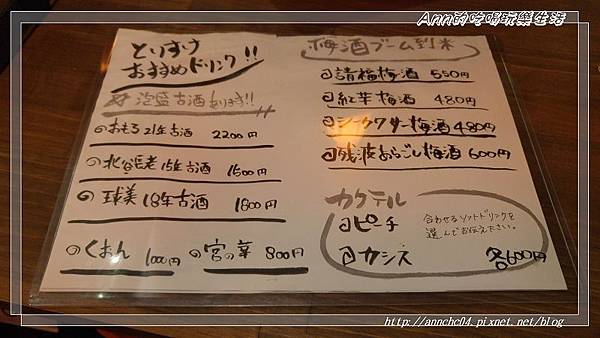 Ann的吃喝玩樂生活
とりすけ
おすすめドリンク!!
泡盛古酒あります!!
おもろ21年古酒 2200円
北谷長老15年古酒 1500円
球美18年古酒 1800円
くおん 1000円
宮の華 800円
梅酒ブーム到来
請福梅酒 550円
紅芋梅酒 480円
シークワサー梅酒 480円
残波あらごし梅酒 600円
カクテル
ピーチ
カシス
合わせるソフトドリンクを
選んでお伝え下さい。
各600円
http://annchc04.pixnet.net/blog